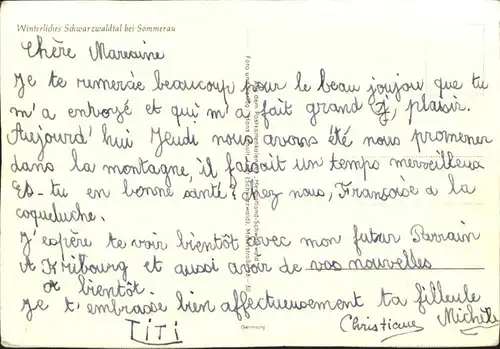 Winterliches Schwarzwaldtal bei Sommerau
Chère Marraine
Je te remercie beaucoup pour le beau joujou que tu
m'a envoyé et qui m'a fait grand plaisir.
Aujourd'hui Jeudi nous avons été nous promener
dans la montagne, il faisait un temps merveilleux
Es-tu en bonne santé? chez nous, Françoise a la
coqueluche.
J'espère te voir bientôt avec mon futur Parrain
A Fribourg et aussi avoir de vos nouvelles
A bientôt.
Je t'embrasse bien affectueusement ta filleule
TiTi
Christiane Michèle
Germany